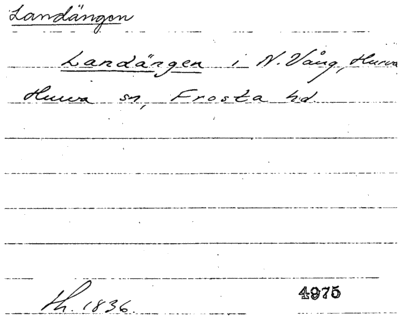 Landängen
Landängen i N. Vång, Hurva
Hurva sn, Frosta hd.
th. 1836.
4975